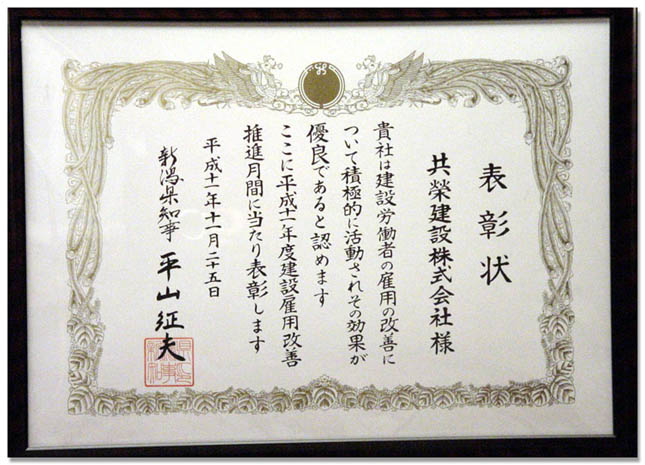 表彰状
共榮建設株式会社様
貴社は建設労働者の雇用の改善に
ついて積極的に活動されその効果が
優良であると認めます
ここに平成十一年度建設雇用改善
推進月間に当たり表彰します
平成十一年十一月二十五日
新潟県知事 平山征夫